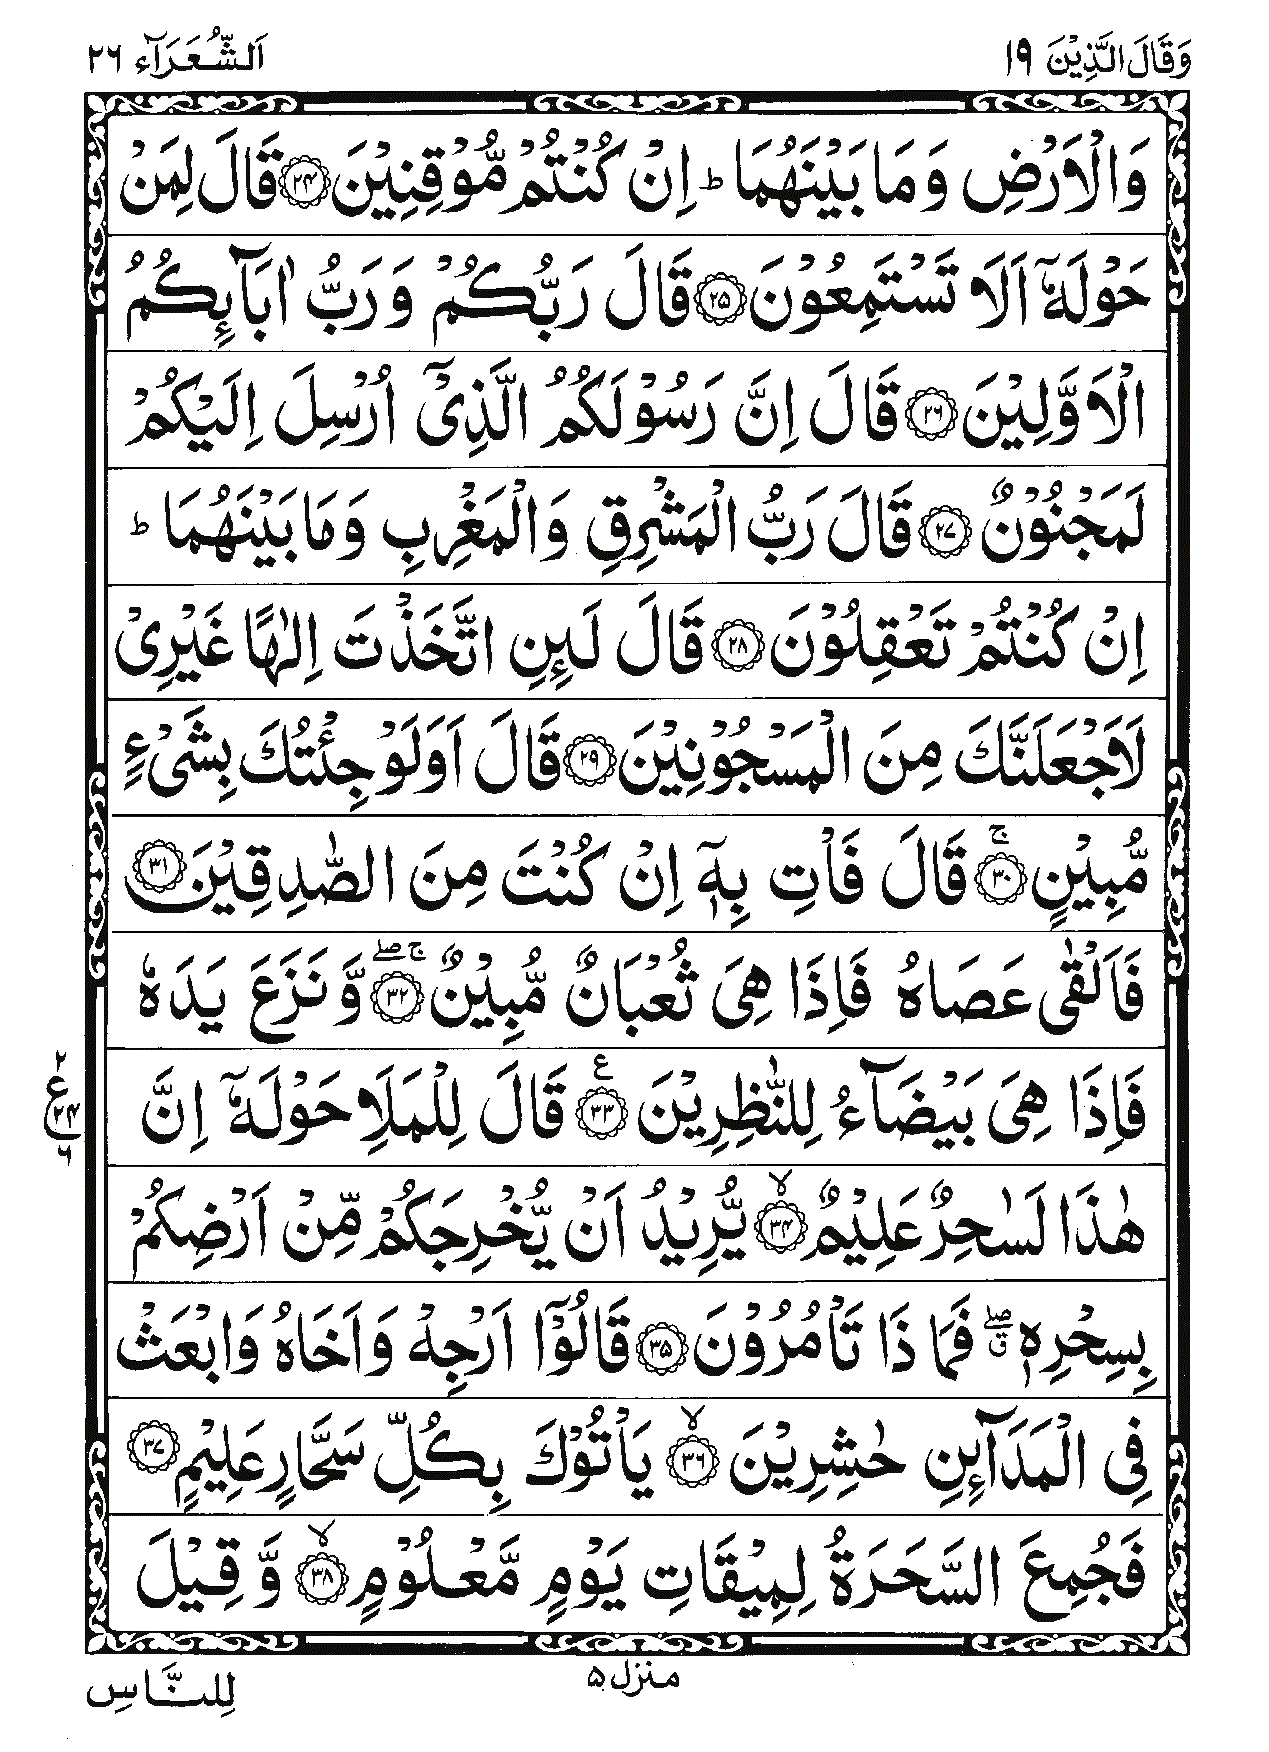 وَقَالَ الَّذِيْنَ ١٩
اَلشُّعَرَآء ٢٦
وَالْاَرْضِ وَمَا بَيْنَهُمَا ؕ اِنْ كُنْتُمْ مُّوْقِنِيْنَ ۝۲۴ قَالَ لِمَنْ
حَوْلَهٗۤ اَلَا تَسْتَمِعُوْنَ ۝۲۵ قَالَ رَبُّكُمْ وَ رَبُّ اٰبَآئِكُمُ
الْاَوَّلِيْنَ ۝۲۶ قَالَ اِنَّ رَسُوْلَكُمُ الَّذِیْۤ اُرْسِلَ اِلَيْكُمْ
لَمَجْنُوْنٌ ۝۲۷ قَالَ رَبُّ الْمَشْرِقِ وَالْمَغْرِبِ وَمَا بَيْنَهُمَا ؕ
اِنْ كُنْتُمْ تَعْقِلُوْنَ ۝۲۸ قَالَ لَئِنِ اتَّخَذْتَ اِلٰهًا غَيْرِیْ
لَاَجْعَلَنَّكَ مِنَ الْمَسْجُوْنِيْنَ ۝۲۹ قَالَ اَوَلَوْ جِئْتُكَ بِشَیْءٍ
مُّبِيْنٍ ۝۳۰ۚ قَالَ فَاْتِ بِهٖۤ اِنْ كُنْتَ مِنَ الصّٰدِقِيْنَ ۝۳۱
فَاَلْقٰى عَصَاهُ فَاِذَا هِیَ ثُعْبَانٌ مُّبِيْنٌ ۝۳۲ۚۖ وَّ نَزَعَ يَدَهٗ
فَاِذَا هِیَ بَيْضَآءُ لِلنّٰظِرِيْنَ ۝۳۳ع قَالَ لِلْمَلَاِ حَوْلَهٗۤ اِنَّ
٢ ع ۲۴ ٦
هٰذَا لَسٰحِرٌ عَلِيْمٌ ۝۳۴ۙ يُّرِيْدُ اَنْ يُّخْرِجَكُمْ مِّنْ اَرْضِكُمْ
بِسِحْرِهٖ ۖۗ فَمَا ذَا تَاْمُرُوْنَ ۝۳۵ قَالُوْۤا اَرْجِهْ وَاَخَاهُ وَابْعَثْ
فِی الْمَدَآئِنِ حٰشِرِيْنَ ۝۳۶ۙ يَاْتُوْكَ بِكُلِّ سَحَّارٍ عَلِيْمٍ ۝۳۷
فَجُمِعَ السَّحَرَةُ لِمِيْقَاتِ يَوْمٍ مَّعْلُوْمٍ ۝۳۸ۙ وَّ قِيْلَ
منزل ۵
لِلنَّاسِ